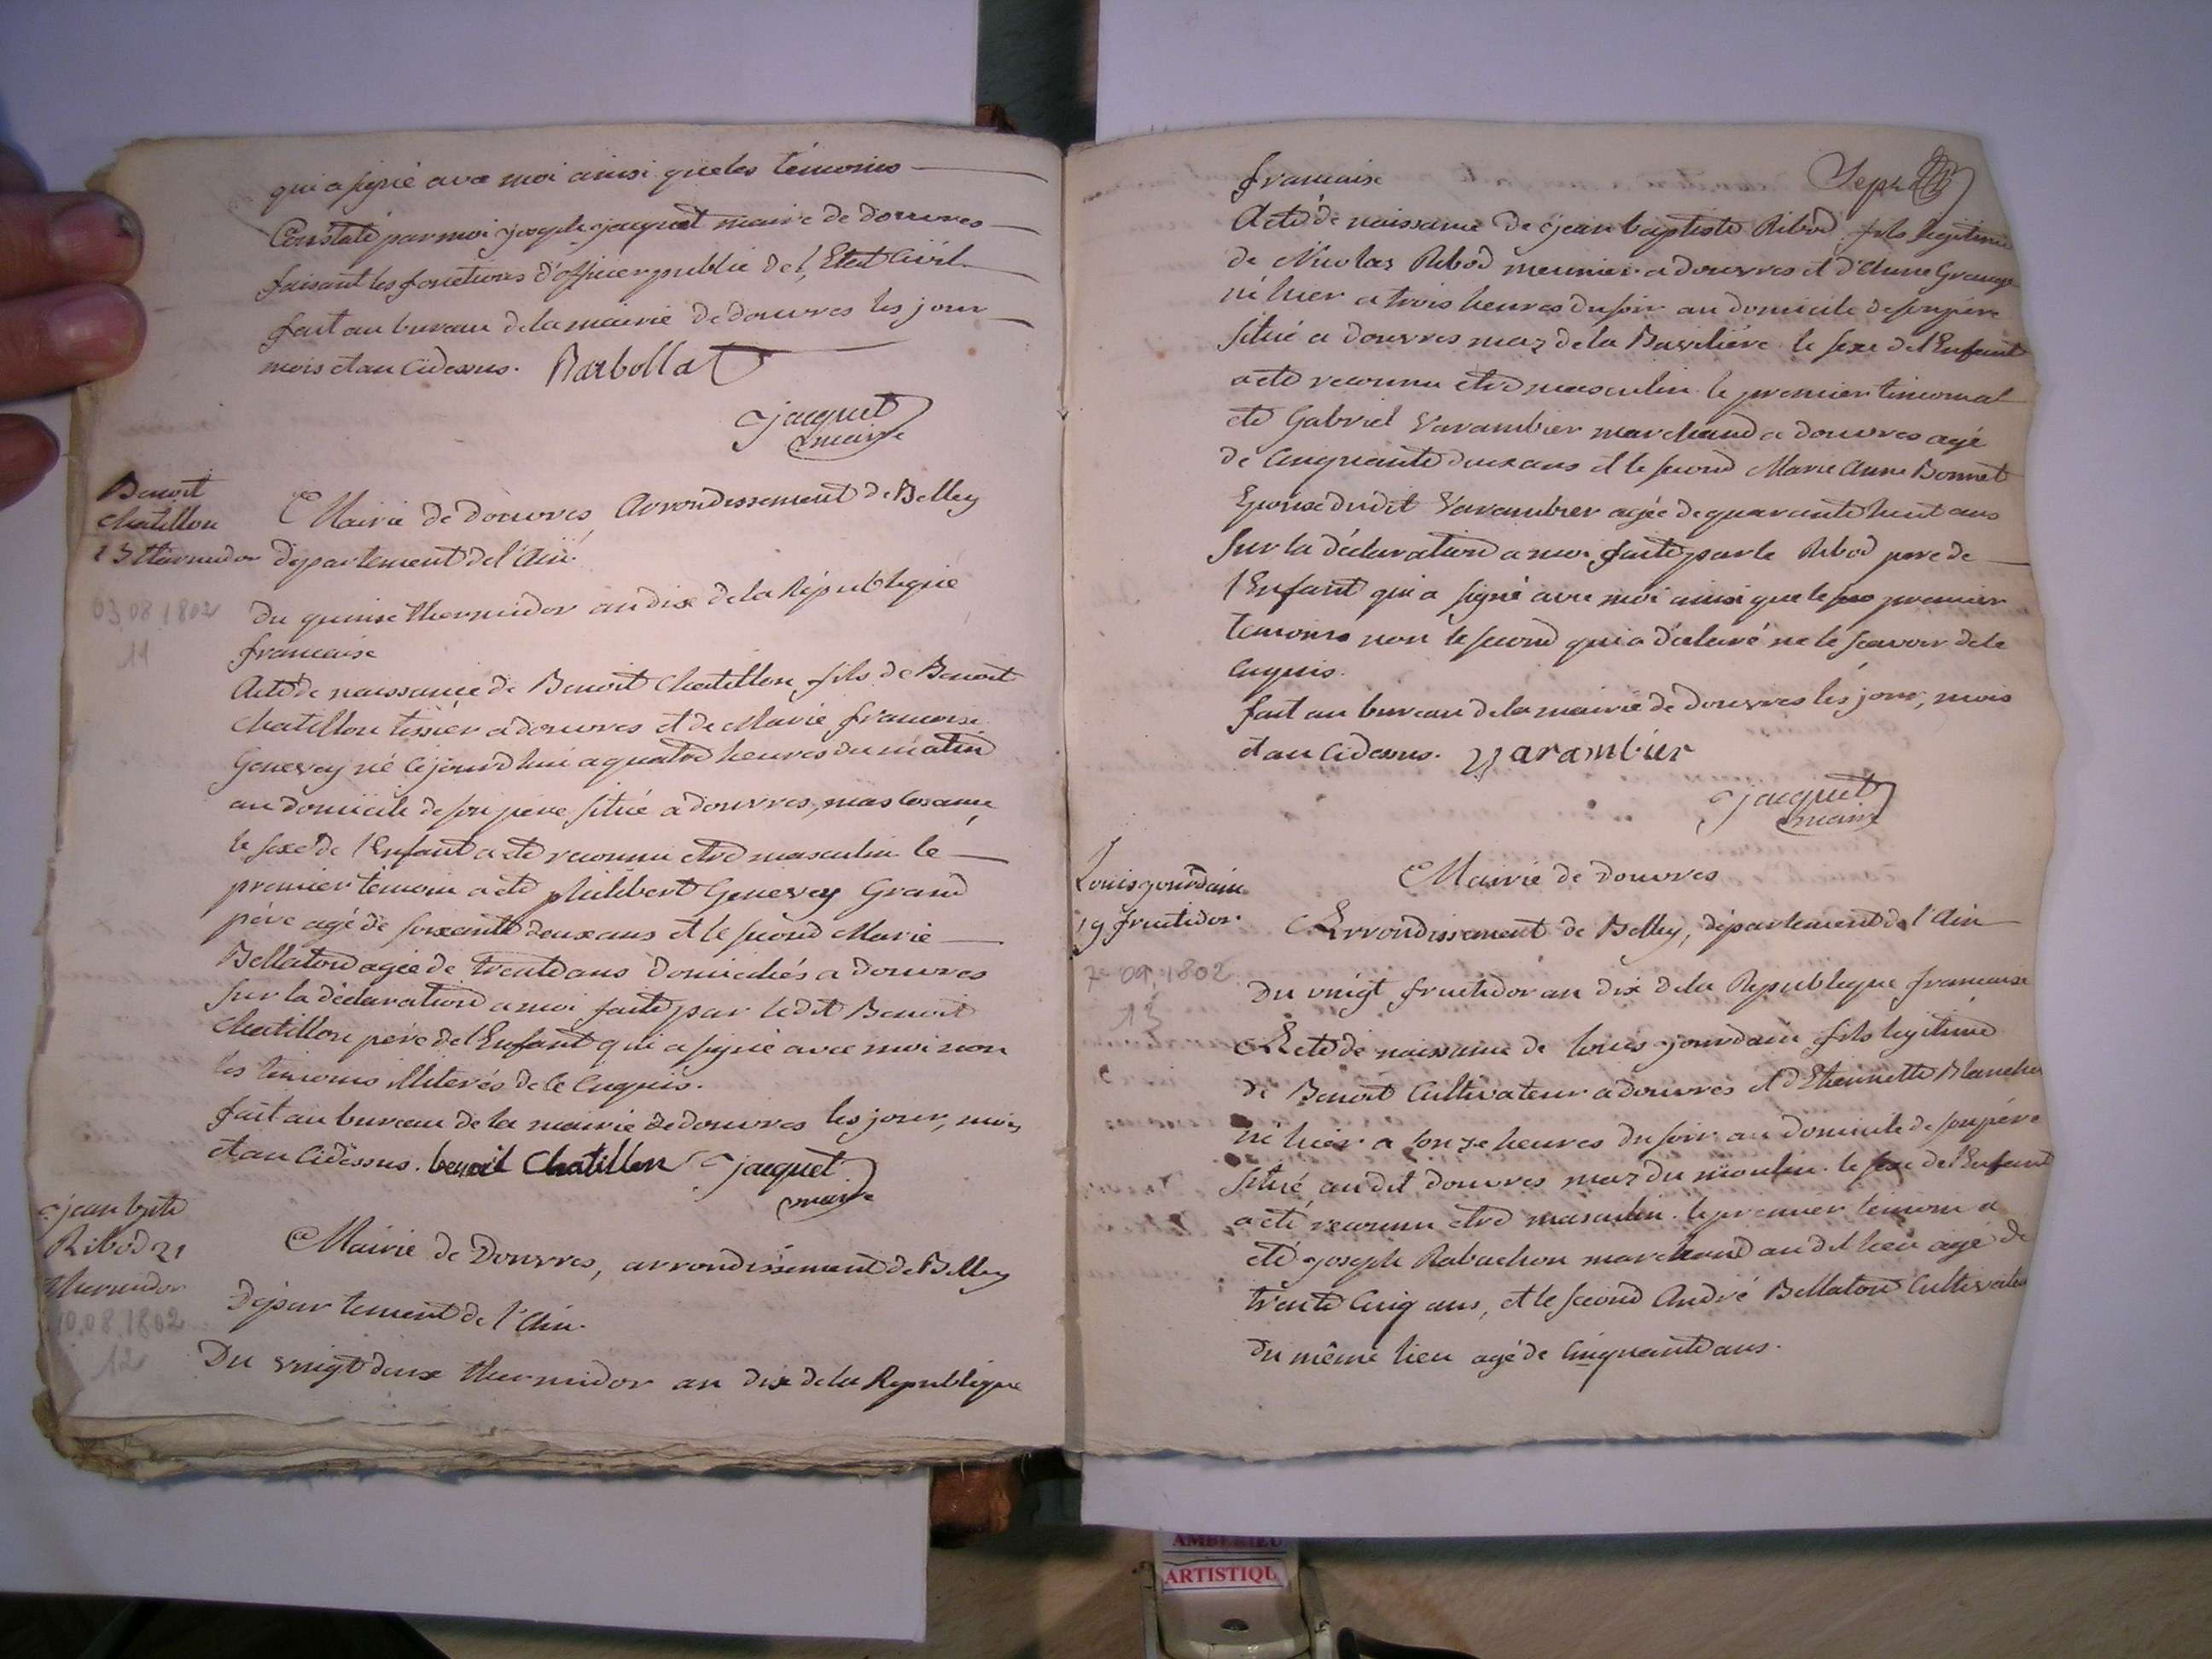 qui a signé avec moi ainsi que les témoins
Constaté par moi joseph jacquet maire de douvres
faisant les fonctions d'officier public de l'Etat Civil
fait au bureau de la mairie de douvres les jour
mois et an cidessus. Barbollat
jacquet
maire
Benoit
chatillon
15 thermidor
03.08.1802
11
Mairie de douvres, Arrondissement de Belley
departement de l'Ain.
du quinse thermidor an dix de la République
francaise
Acte de naissance de Benoit Chatillon, fils de Benoit
Chatillon tissier a douvres et de Marie francoise
Genevey né cejourd'hui a quatre heures du matin
au domicile de son pere situé a douvres, mas
le sexe de l'Enfant a été reconnu etre masculin le
premier témoin a eté philibert Genevey Grand
pére agé de soixante deux ans et le second Marie
Bellaton agée de trente ans domiciliés a douvres
sur la déclaration a moi faite par ledit Benoit
Chatillon pére de l'Enfant qui a signé avec moi non
les témoins illiterés de ce enquis.
fait au bureau de la mairie de douvres les jour, mois
et an cidessus. benoit Chatillon jacquet
maire
jean bpte
Ribod 21
thermidor
10.08.1802
12
Mairie de Douvres, arrondissement de Belley
Département de l'Ain.
Du vingt deux thermidor an dix de la Republique
francaise
Sept
Acte de naissance de jean baptiste Ribod fils legitime
de Nicolas Ribod meunier a douvres et d'Anne Grange
né hier a trois heures du soir au domicile de son père
situé a douvres maz de la le sexe de l'Enfant
a eté reconnu etre masculin le premier temoin a
eté Gabriel Varambier marchand a douvres agé
de Cinquante deux ans et le second Marie Anne Bonnet
Epouse dudit Varambier agée de quarante huit ans
sur la déclaration a moi faite par le Ribod pere de
l'Enfant qui a signé avec moi ainsi que le premier
temoins non le second qui a déclaré ne le scavoir de ce
enquis.
fait au bureau de la mairie de douvres les jour, mois
et an cidessus. Varambier
jacquet
maire
Louis jourdain
19 fructidor.
7 09.1802
13
Mairie de douvres
Arrondissement de Belley, département de l'Ain
Du vingt fructidor an dix de la Republique francaise
Acte de naissance de louis jourdain fils legitime
de Benoit Cultivateur a douvres et d'Etiennette Blanchet
né hier a honze heures du soir au domicile de son pére
situé audit douvres maz du moulin. le sexe de l'Enfant
a eté reconnu etre masculin. le premier temoin a
eté joseph Rabachon marchand audit lieu agé de
trente Cinq ans, et le second André Bellaton Cultivateur
du même lieu agé de Cinquante ans.
AMBERIEU
ARTISTIQU